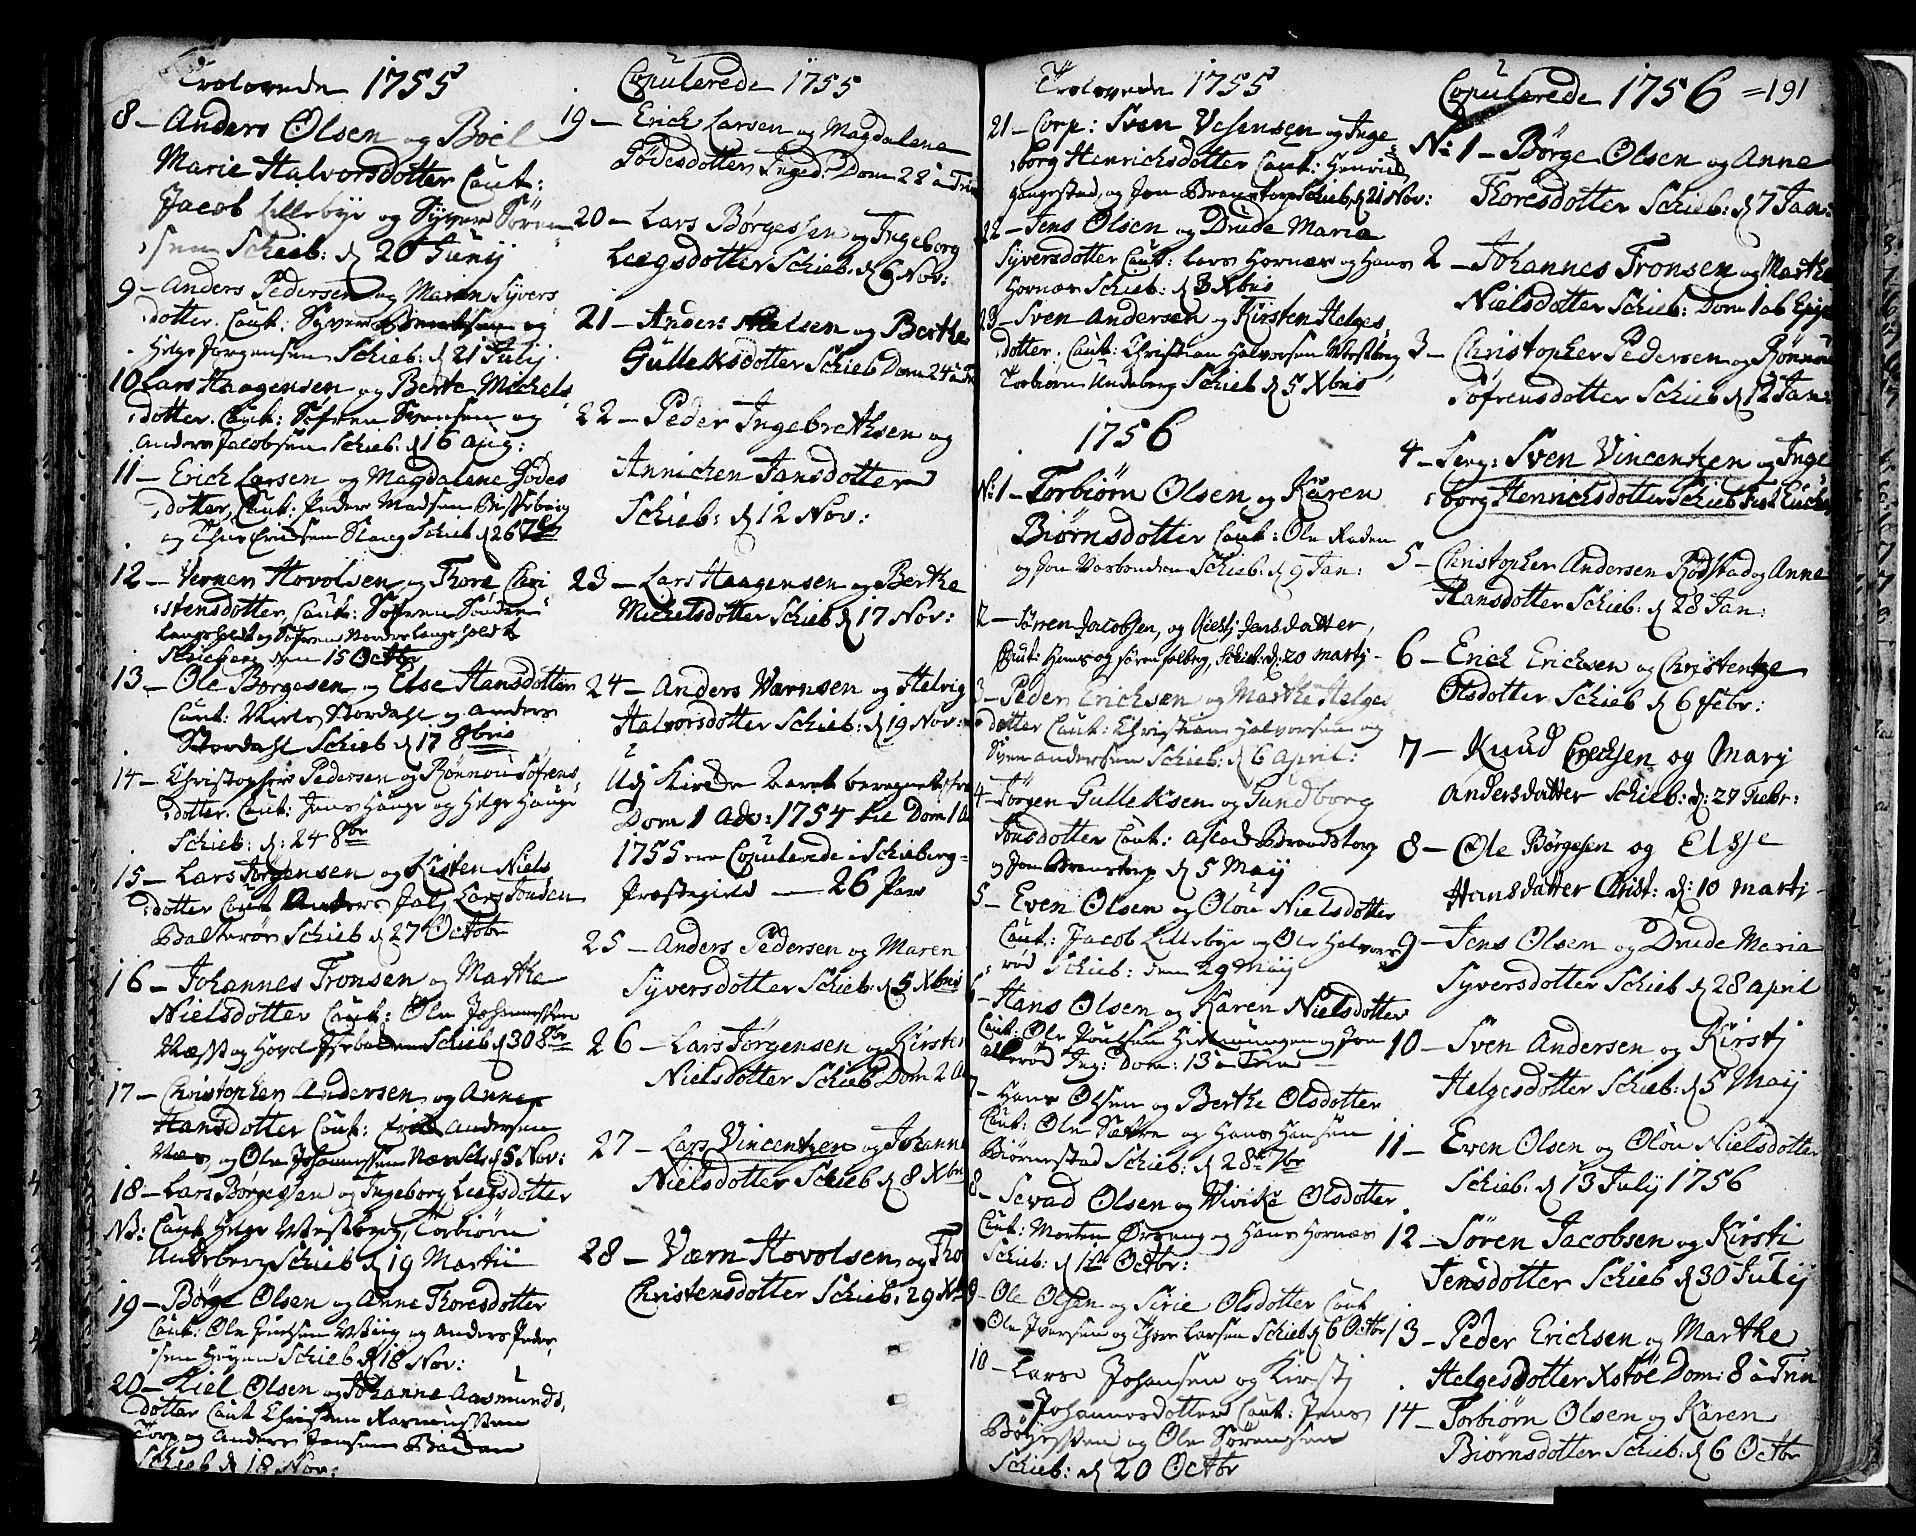 Trolovede 1755
8 — Anders Olsen og Boel
Marie Halvorsdotter Caut:
Jacob Lillebye og Syver Sören
sen Schieb: d 20 Juny
9 — Anders Pedersen og Maren Syvers
dotter. Caut: Syver og
Helge Jörgensen Schieb: d 21 Julij
10 Lars Haagensen og Berte Michels
dotter. Caut: Söfren Svensen og
Anders Jacobsen Schieb: d 16 Aug:
11 — Erich Larsen og Magdalene Gödes
dotter, Caut: Peder Madsen
og Ericksen Slang Schieb d 26 7br
12 — Vernen Hovolsen og Thore Chri
stensdotter, Caut: Söfren Sönder
langeholdt og Söfrens Nordre langeholdt
den 15 Octbr
13 — Ole Börgesen og Else Hansdotter
Caut: Niels Stordahl og Anders
Stordahl Schieb d 17 8bris
14 — Christopher Pedersen og Rönnou Söfrens
dotter. Caut: Jens Hauge og Helge Hauge
Schieb: d: 24 8br
15 — Lars Jörgensen og Kisten Niels
dotter Caut Anders Lars Tonden
Balteröe Schieb d 27 Octobr
16 — Johannes Tronsen og Marthe
Nielsdotter Caut: Ole Johannessen
Næss og Hovol Schieb d 30 8br
17 — Christopher Andersen og Anne
Hansdotter Caut: Erich Andersen
Næs og Ole Johannessen Næs Sch: d 5 Nov:
18 — Lars Börgessen og Ingeborg Leegsdotter
NB: Caut Helge Westberg, Torbiörn
Undeberg Schieb d 19 Martii
19 — Börge Olsen og Anne Thoresdotter
Caut: Ole og Anders Peder
sen Höyen Schieb d 18 Nov:
20 — Kiel Olsen og Johanne Aasmunds
dotter Caut Christen Rasmussen
Torp og Anders Jensen
Schieb d 18 Nov:
Copulerede 1755
19 — Erich Larsen og Magdalena
Gödesdotter Inged: Dom 23 a Trin
20 — Lars Börgessen og Ingeborg
Leegsdotter Schieb. d 6 Nov:
21 — Anders Nielsen og Berthe
Gulleksdotter Schieb Dom 24 a Tr
22 — Peder Ingebrethsen og
Annichen Jansdotter
Schieb: d 12 Nov:
23 — Lars Haagensen og Berthe
Michelsdotter Schieb d 17 Nov:
24 — Anders Warnsen og Helvig
Halvorsdotter Schieb: d 19 Nov:
Udj Kircke Aaret beregnet fra
Dom 1 Adv: 1754 til Dom 1 A
1755 ere Copulerede i Schieberg
Præstegield — 26 Par
25 — Anders Pedersen og Maren
Syversdotter Schieb: d 5 Xbris
26 — Lars Jörgensen og Kirsten
Nielsdotter Schieb Dom 2 A
27 — Lars Vincentzen og Johanne
Nielsdotter Schieb d 8 Xbris
28 — Værn Hovolsen og Tho
Christensdotter Schieb: 29 X
Trolovede 1755
21 — Corp: Sven Vesensen og Inge
borg Henrichsdotter Caut: Henrich
og Jon Branstorp Schieb, d 21 Nov:
22 — Jens Olsen og Drude Maria
Syversdotter Caut: Lars Hornæs og Hans
Hornæs Schieb: d 3 Xbris
23 — Sven Andersen og Kirsten Helges
dotter. Caut: Christian Halvorsen Westberg
Torbiörn Undeberg Schieb d 5 Xbris
1756
No 1 — Torbiörn Olsen og Karen
Biörnsdotter Caut: Ole Raden
og Jon Schieb. d 9 Jan:
2 — Sörren Jacobsen, og Kiestj Jensdatter,
Caut: Hans og Sören Solberg, Schieb: d: 20 Martj —
3 — Peder Erichsen og Marthe Helges
dotter Caut: Christian Halvorsen og
Sven Andersen Schieb: d 6 April:
4 — Jörgen Gulleksen og Gundborg
Jonsdotter Caut: Aslak Brandstorp
og Jon Branstorp d 5 Maij
5 — Even Olsen og Olou Nielsdotter
Caut: Jacob Lillebye og Ole Halvors
röd Schieb: den 29 Maij
6 — Hans Olsen og Karen Nielsdotter
Caut: Ole Poulsen og Jon
Alleröd Ing: Dom: 13 a Trin —
7 — Hans Olsen og Berthe Olsdotter
Caut: Ole Sætre og Hans Hansen
Biörnestad Schieb: d 28 7br
8 — Sevad Olsen og Wivike Olsdotter
Caut: Morten og Hans Hornæs
Schieb: d 1ste Octbr:
9 — Ole Olsen og Sirie Olsdotter Caut
Ole Iversen og Thore Larsen Schieb d 6 Octbr
10 — Lars Johansen og Kirstj
Johannesdotter Caut: Jens
Böyessen og Ole Sörensen
Schieb: d 20 Octbr
Copulerede 1756 =191
No 1 — Börge Olsen og Anne
Thoresdotter Schieb: d 7 Jan:
2 — Johannes Tronsen og Marthe
Nielsdotter Schieb: Dom 1 ab Epip
3 — Christopher Pedersen og Rönnou
Söfrensdotter Schieb d 12 Jan:
4 — Serg: Sven Vincentzen og Inge
borg Henrichsdotter Schieb
5 — Christopher Andersen Rödstad og Anne
Hansdotter Schieb: d 28 Jan:
6 — Erich Erichsen og Christentze
Olsdotter Schieb d 6 Febr:
7 — Knud Erichsen og Marj
Andersdatter Schieb: d: 27 Febr:
8 — Ole Börgesen og Elsje
Hansdatter Christ: d: 10 Martj —
9 — Jens Olsen og Drude Maria
Syversdotter Schieb d 28 April
10 — Sven Andersen og Kirstj
Helgesdotter Schieb: d 5 Maij
11 — Even Olsen og Olou Nielsdotter
Schieb: d 13 July 1756
12 — Sören Jacobsen og Kirsti
Jensdotter Schieb d 30 Julij
13 — Peder Erichsen og Marthe
Helgesdotter Xstöe Dom: 8 a Trin
14 — Torbiörn Olsen og Karen
Biörnsdotter Schieb: d 6 Octbr